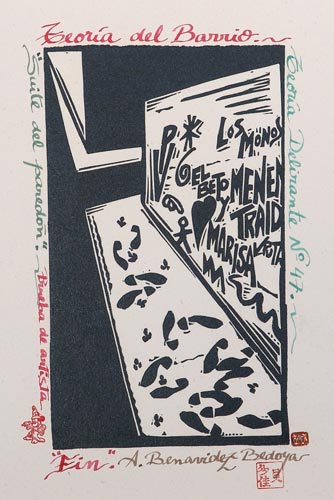 Teoría del Barrio.
"Suite del paredón."
Prueba de artista
Teoría Delirante Nº 47.
LOS MONOS
EL BETO
Y
MARISA
MENEN
TRAID
"Fin". A. Benavidez Bedoya